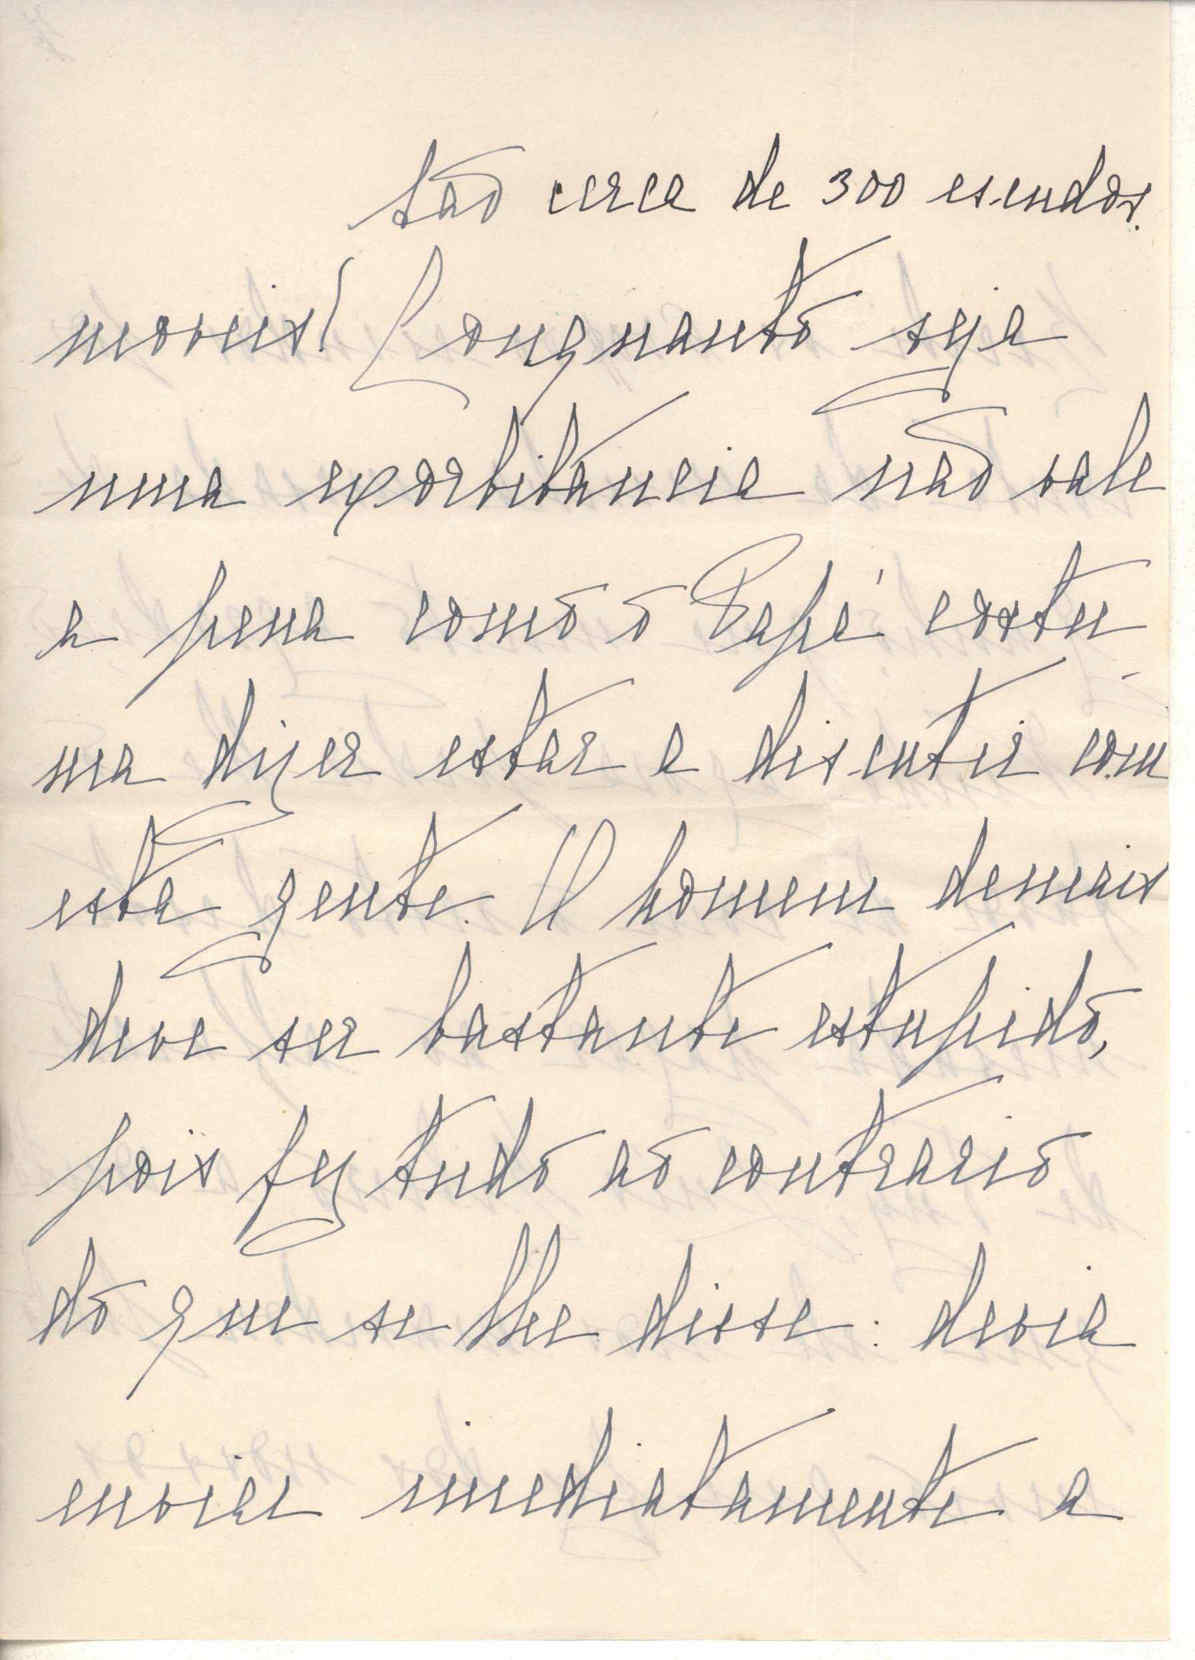 São cerca de 300 escudos.
moveis! Conquanto seja
uma exorbitancia não vale
a pena como o Papá costu
ma dizer estar a discutir com
esta gente. O homem demais
deve ser bastante estupido,
pois fez tudo ao contrario
do que se lhe disse: devia
enviar imediatamente a